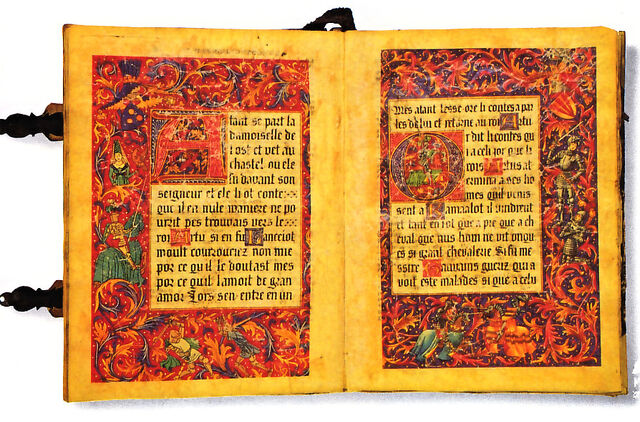 tant se part la
damoiselle de
lost et vet au
chastel ou ele
fu davant son
seigneur et ele li ot conte
que il en nule maniere ne po
urrit pes trouvais vers le
roi Artu si en fu Lanceiot
moult courouciez non mie
por ce qu il le doutast mes
por ce qu il lamoit de gran
amor Lors sen entre en un
Mes atant lesse ore li contes a par
ler de lui et retorne au roi Artu
r dit li contes qu
i a celi jor que li
rois Artus at
ermina a ses ho
mes qu il venis
sent a Kamaalot il vindrent
et tant en fut que a pie que a ch
eval que nus hom ne vit onqu
es si grant chevalerie Si fu me
ssire Gauvains gueriz qui a
voit este malades si que a celu